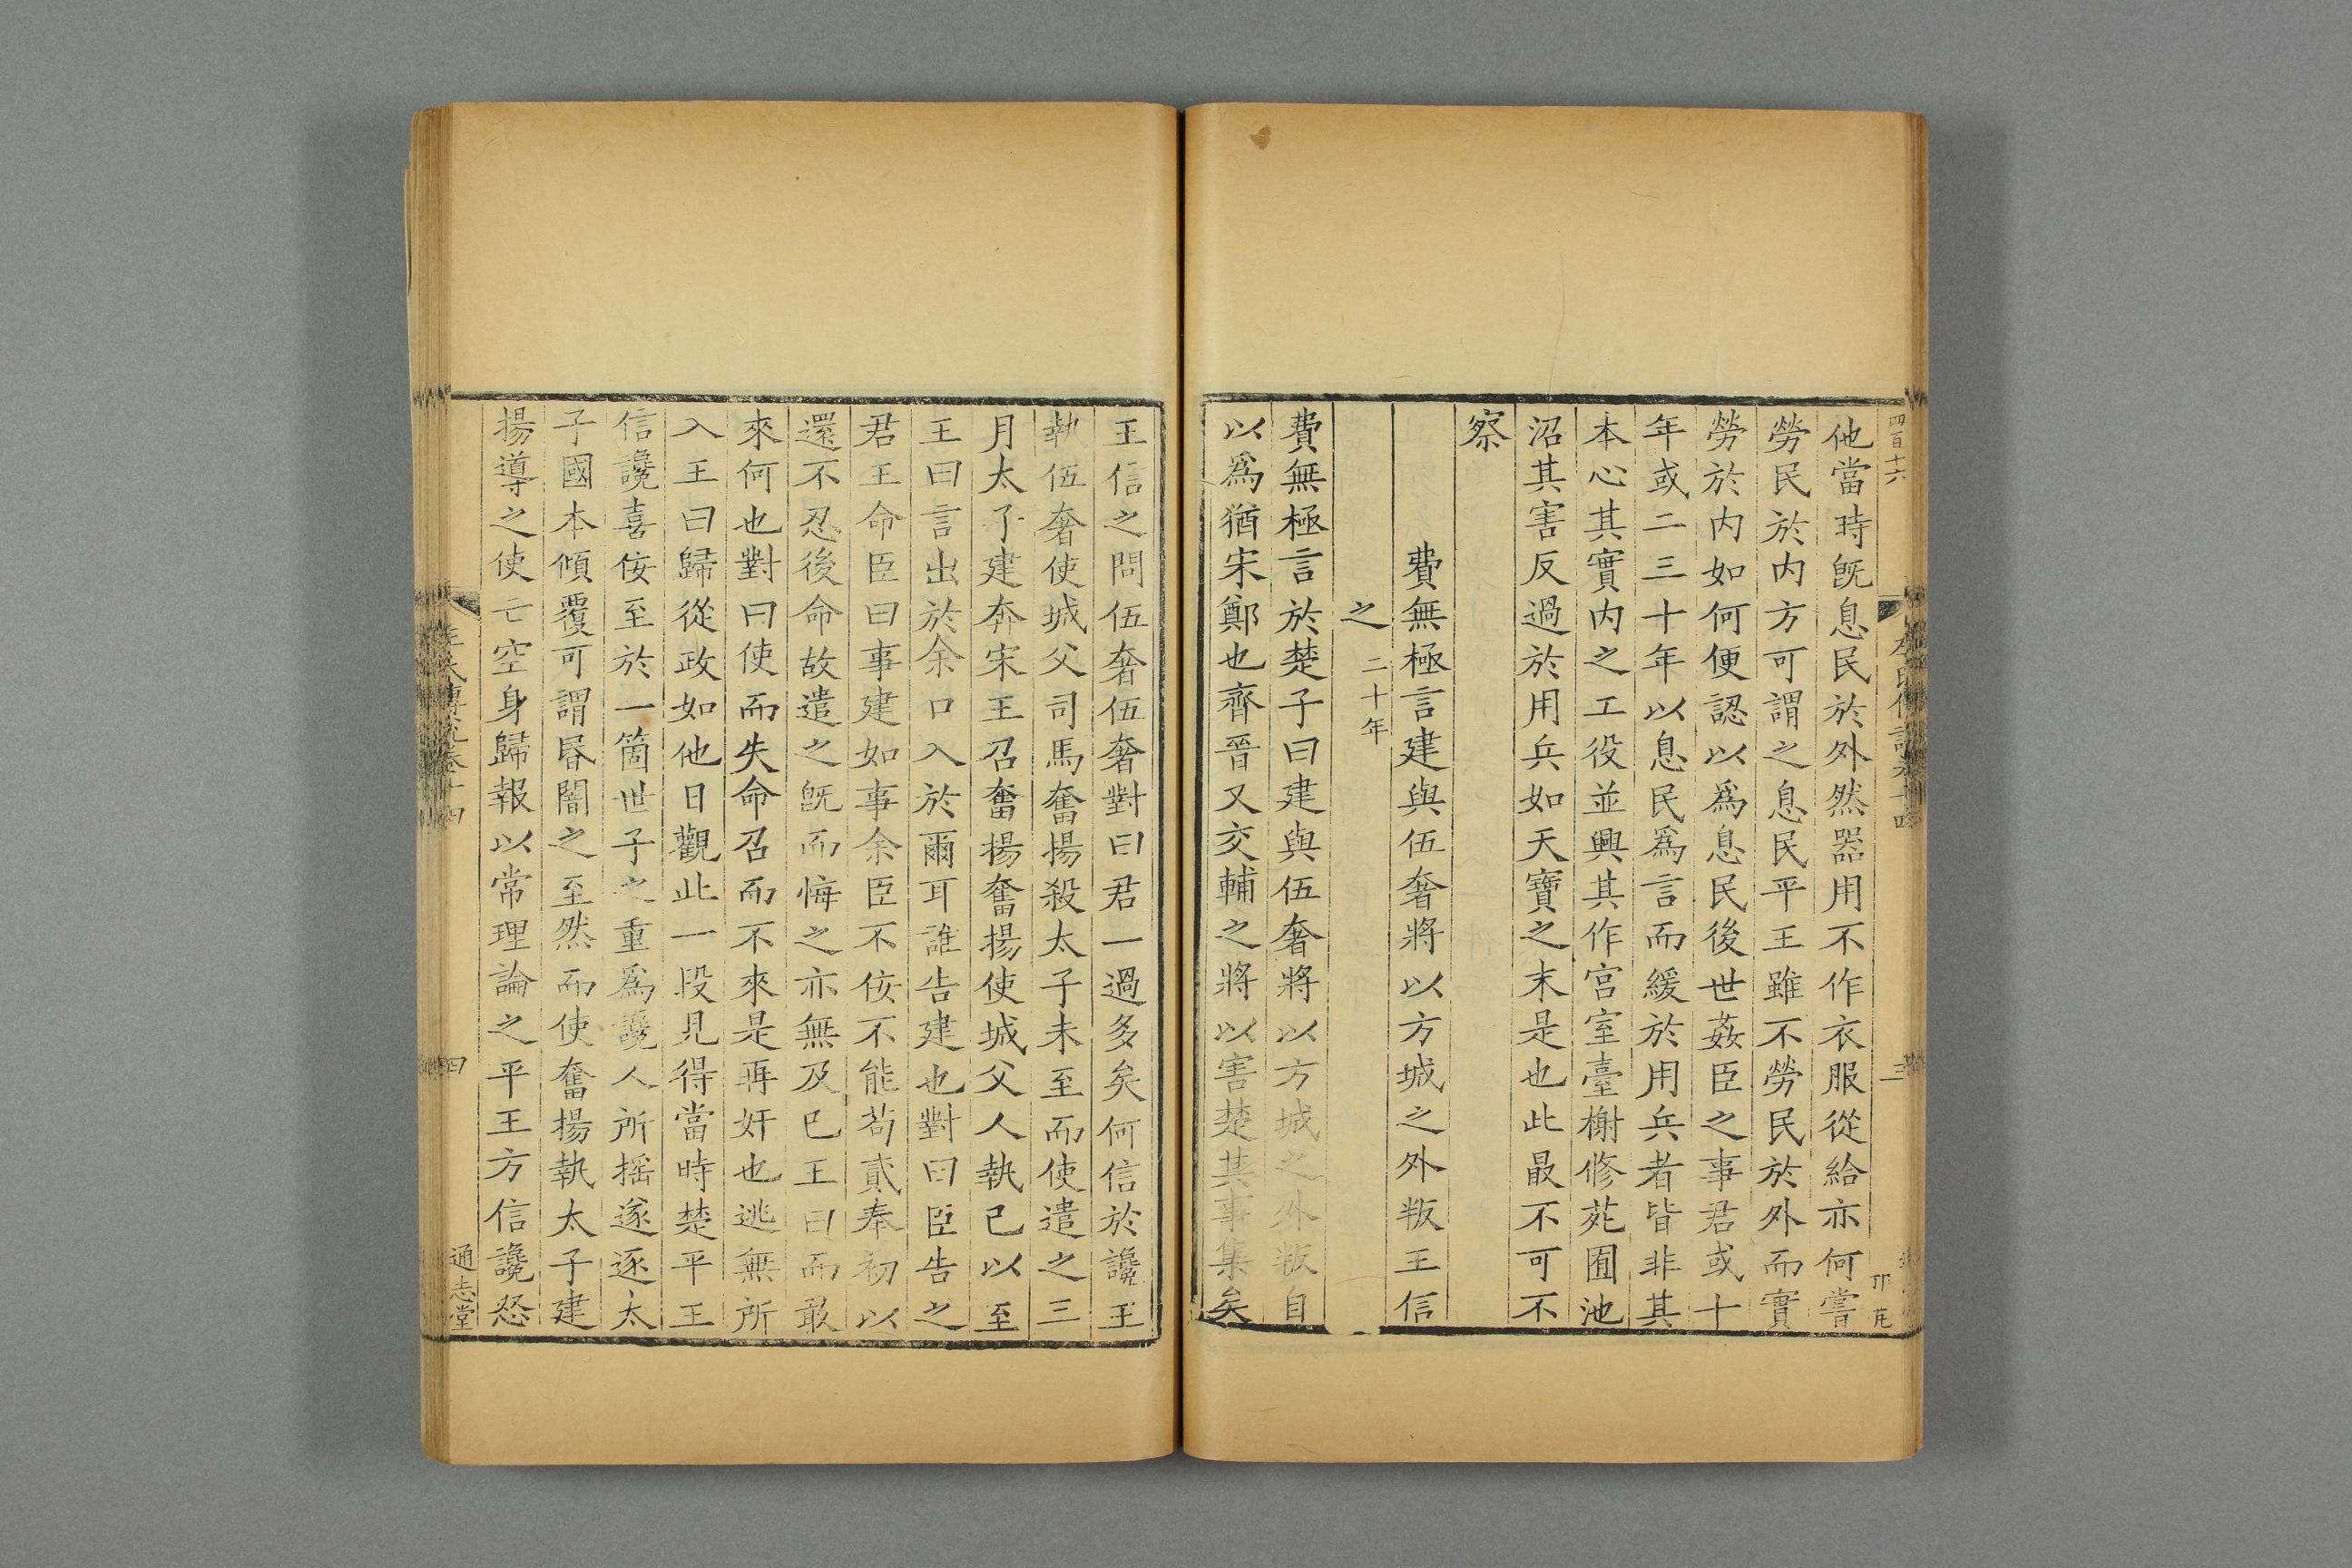 四百十六
他當時旣息民於外然器用不作衣服從給亦何嘗
勞民於内方可謂之息民平王雖不勞民於外而實
勞於内如何便認以爲息民後世姦臣之事君或十
年或二三十年以息民爲言而緩於用兵者皆非其
本心其實内之工役並興其作宮室臺榭修苑囿池
沼其害反過於用兵如天寶之末是也此最不可不
察
費無極言建與伍奢將以方城之外叛王信
之 二十年
費無極言於楚子曰建與伍奢將以方城之外叛自
以爲猶宋鄭也齊晉又交輔之將以害楚其事集矣
王信之問伍奢伍奢對曰君一過多矣何信於讒王
執伍奢使城父司馬奮揚殺太子未至而使遣之三
月太子建奔宋王召奮揚奮揚使城父人執己以至
王曰言出於余口入於爾耳誰告建也對曰臣告之
君王命臣曰事建如事余臣不佞不能苟貳奉初以
還不忍後命故遣之旣而悔之亦無及已王曰而敢
來何也對曰使而失命召而不來是再奸也逃無所
入王曰歸從政如他日觀此一段見得當時楚平王
信讒喜佞至於一箇世子之重爲讒人所揺遂逐太
子國本傾覆可謂昬闇之至然而使奮揚執太子建
揚導之使亡空身歸報以常理論之平王方信讒怒
左氏傳說卷十四
四
通志堂